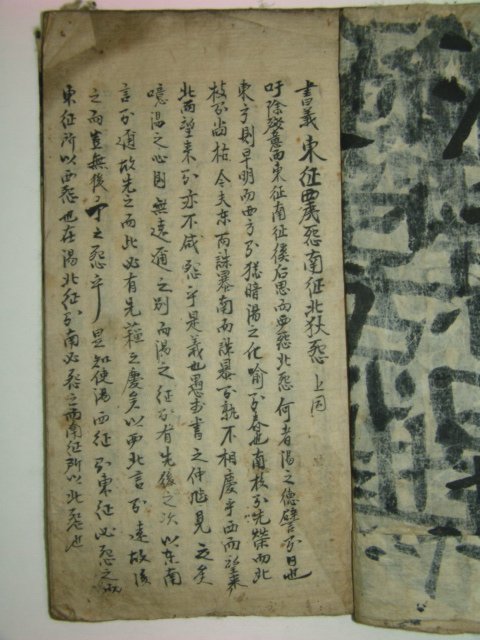 書義 東征西夷怨南征北狄怨 上同
吁除殘暴而東征南征徯后思而西怨北怨何者湯之德譬於日也
東方則早明而西方於猶暗湯之化喩於春也南枝於先榮而北
枝於尚枯今夫東而誅暴南而誅暴於孰不相慶乎西而望來
北而望來於亦不咸怨乎是義也愚於書之仲虺見之矣
噫湯之心固無遠邇之別而湯之征於有先後之次以東南
言於邇故先之而此必有先蘓之慶矣以西北言於遠故後
之而豈無後予之怨乎是知使湯西征於東征必怨之而
東征所以西怨也在湯北征於南必怨之而南征所以北怨也